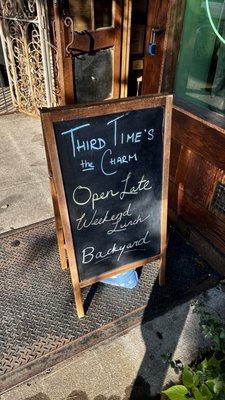 Third Time's
the Charm
Open Late
Weekend
Lunch
Backyard